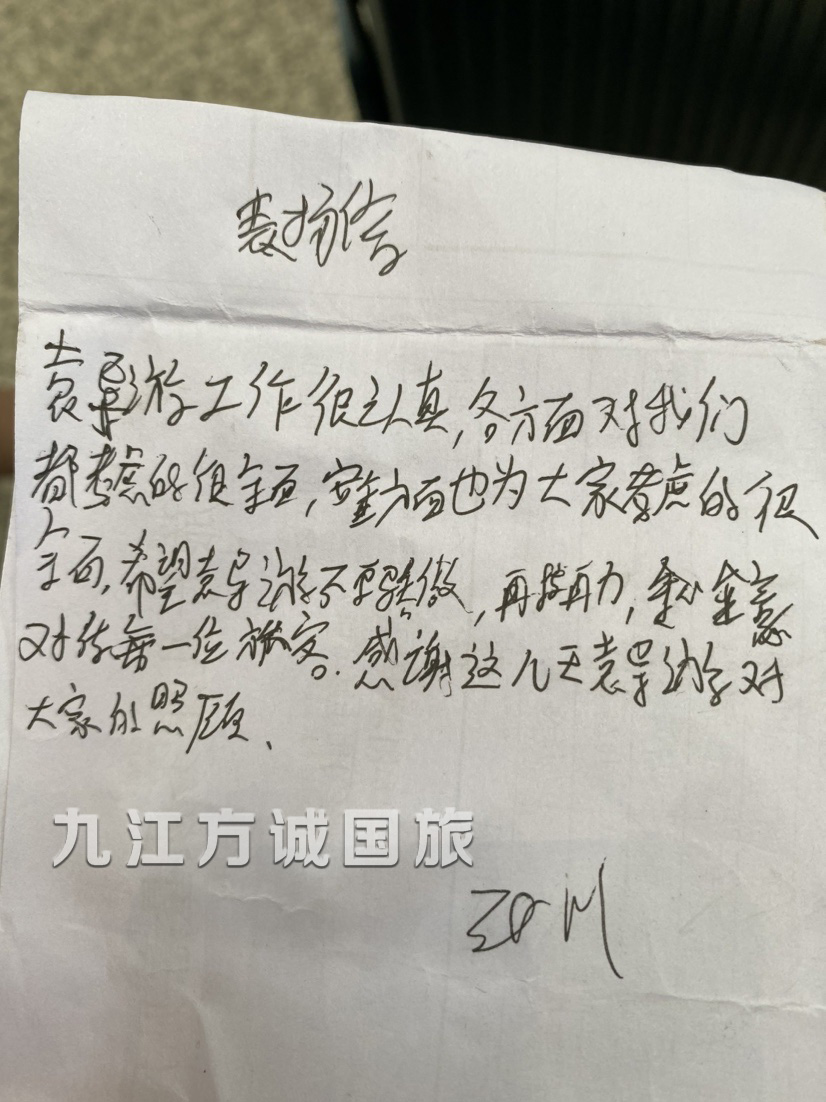 表扬信
袁导游工作很认真,各方面对我们
都考虑的很全面,安全方面也为大家考虑的很
全面,希望袁导游不要骄傲,再接再力,
对待每一位旅客。感谢这几天袁导游对
大家的照顾、
九江方诚国旅